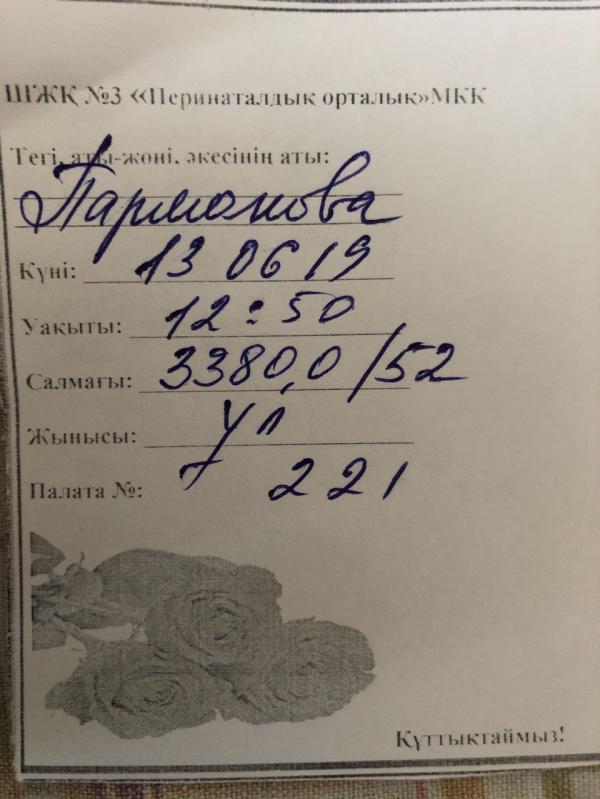 ШЖҚ №3 «Перинаталдық орталық»МКК
Тегі, аты-жөні, әкесінің аты:
Пармонова
Күні: 13 06 19
Уақыты: 12:50
Салмағы: 3380,0/52
Жынысы: ұл
Палата №: 221
Құттықтаймыз!